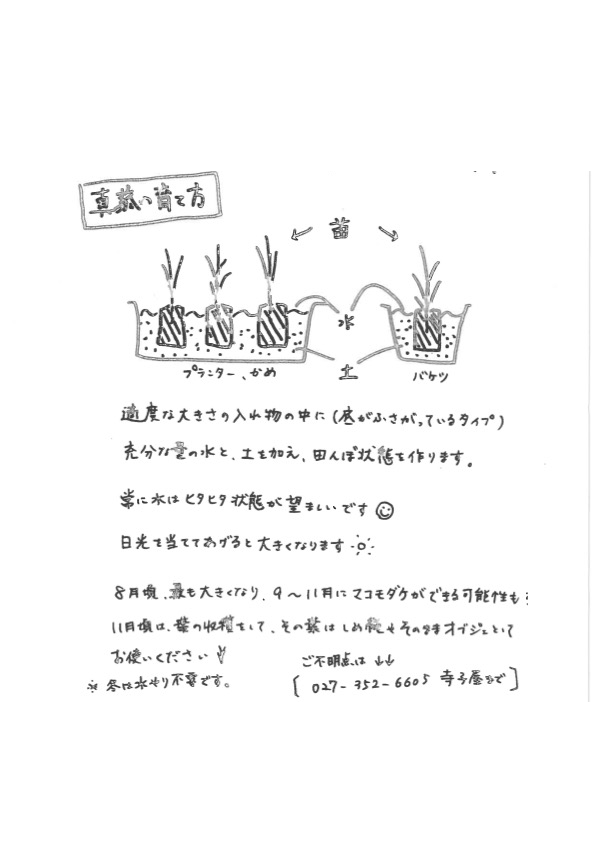 真菰の育て方
苗
水
土
プランター、かめ
バケツ
適度な大きさの入れ物の中に(底がふさがっているタイプ)
充分な量の水と、土を加え、田んぼ状態を作ります。
常に水はヒタヒタ状態が望ましいです
日光を当ててあげると大きくなります
8月頃、最も大きくなり、9〜11月にマコモダケができる可能性も
11月頃は、葉の収穫をして、その葉はしめ縄やそのままオブジェとして
お使いください
※冬は水やり不要です。
ご不明点は ↓↓
[027-352-6605 寺子屋まで]